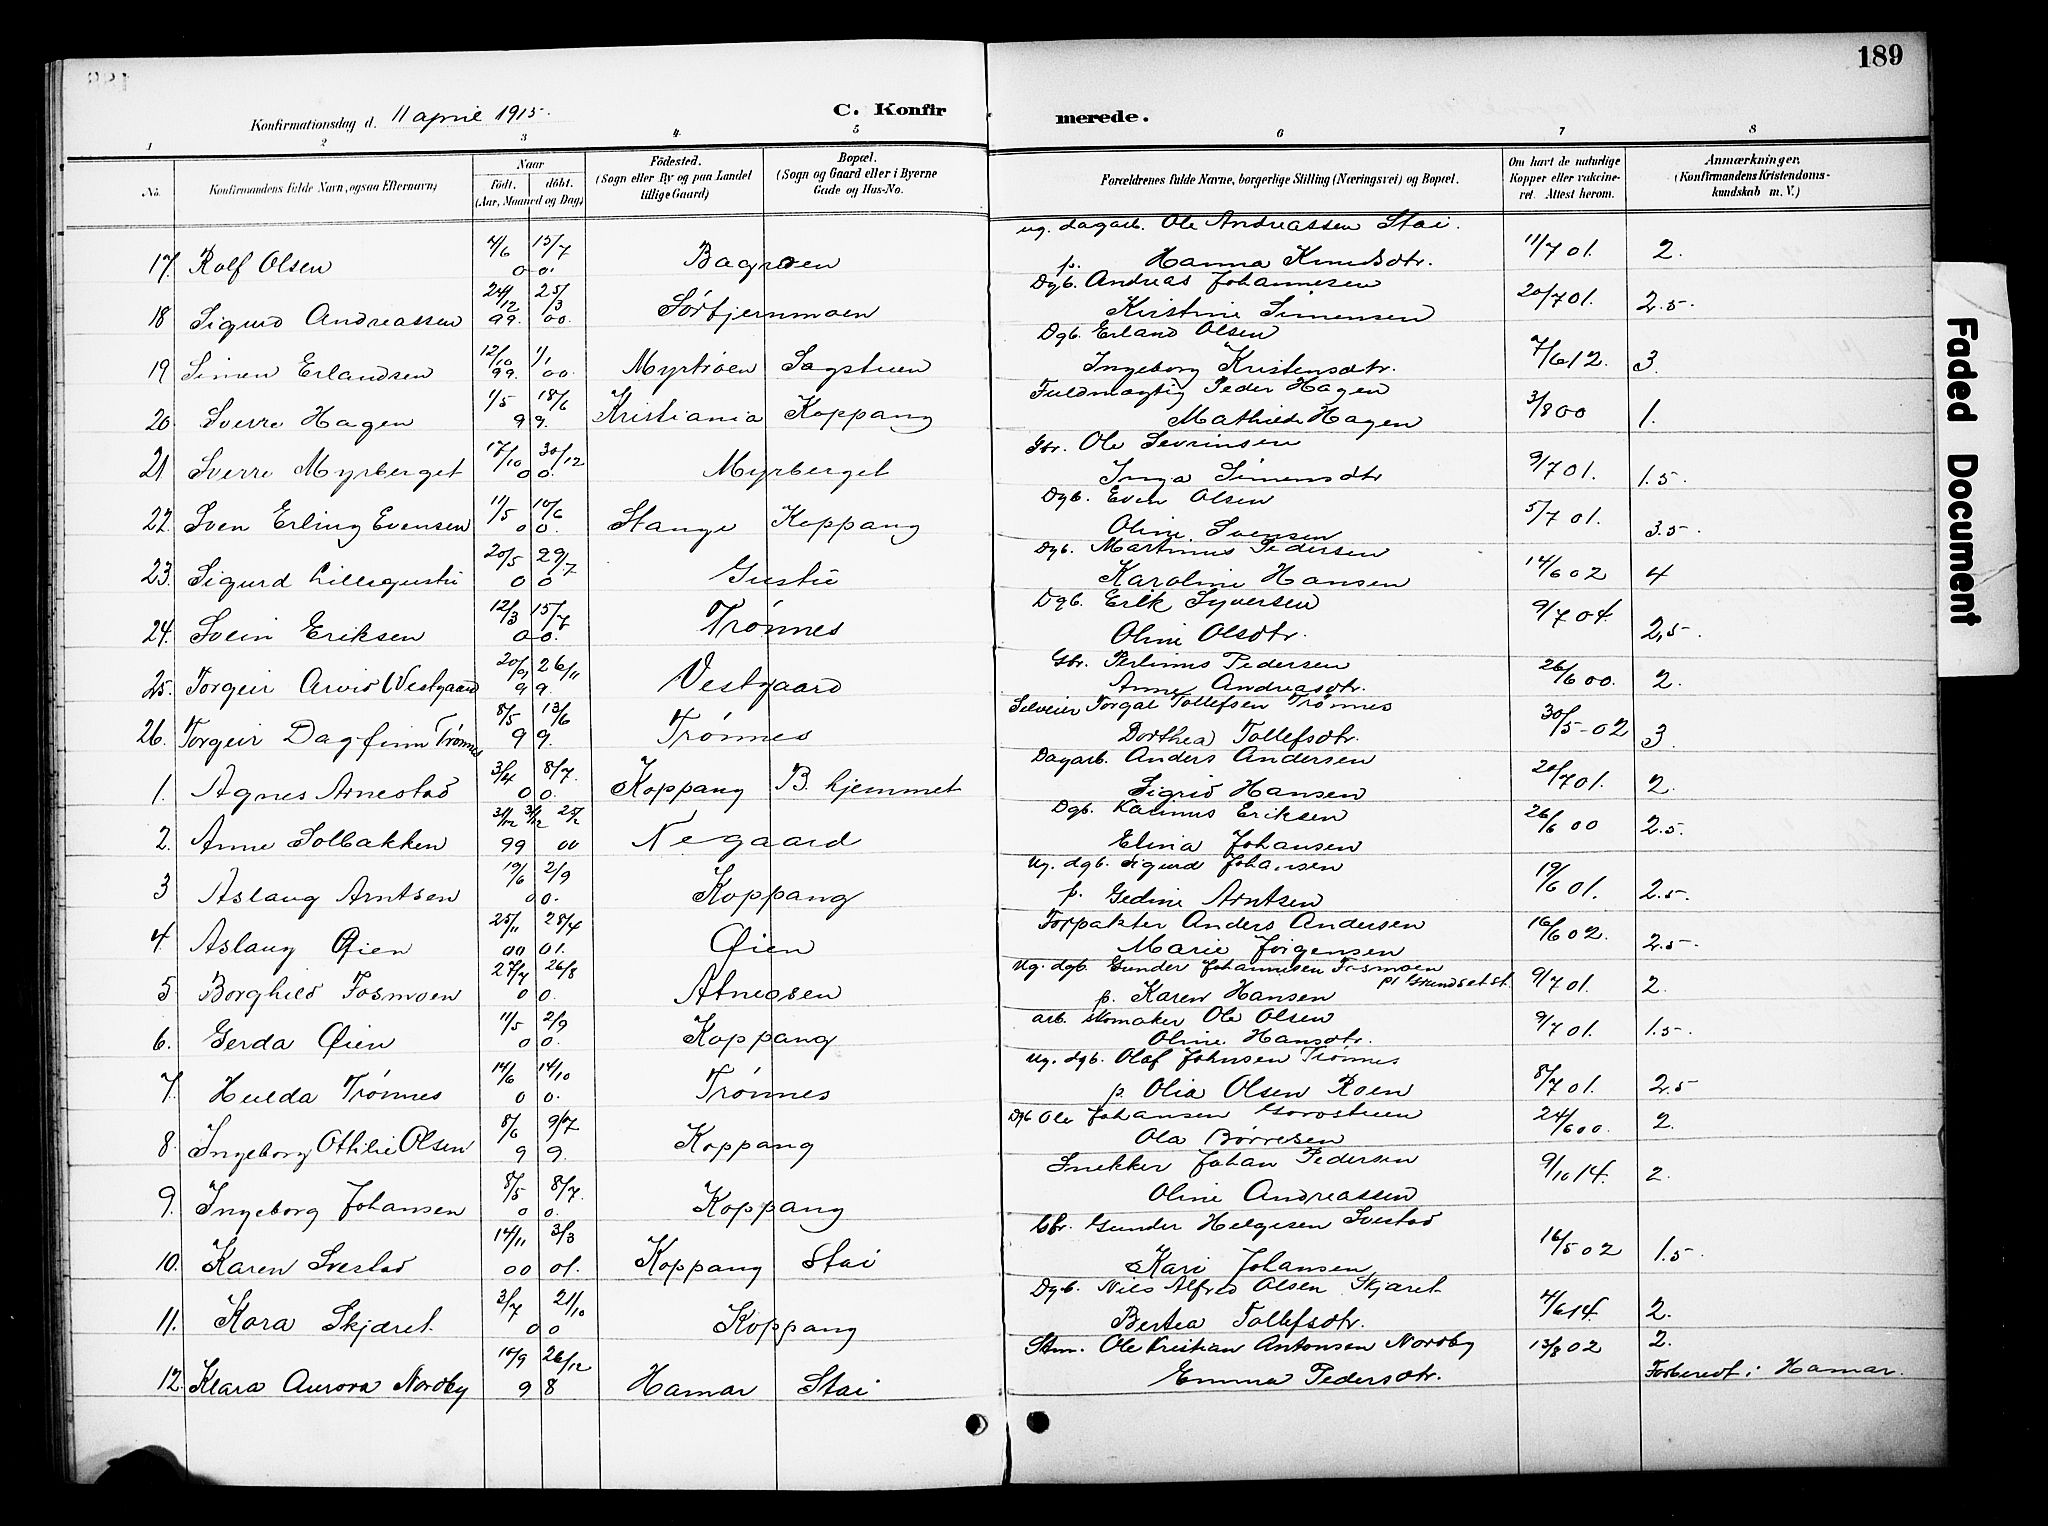 189
Konfirmationsdag d. 11 april 1915.
C. Konfirmerede.
1 2 3 4 5 6 7 8
No.
Konfirmandens fulde Navn, ogsaa Efternavn)
Naar
födt. döbt.
(Aar, Maaned og Dag)
Födested.
(Sogn eller By og paa Landet
tillige Gaard)
Bopæl.
(Sogn og Gaard eller i Byerne
Gade og Hus-No.
Forældrenes fulde Navne, borgerlige Stilling (Næringsvei) og Bopæl.
Om havt de naturlige
Kopper eller vakcine-
ret. Attest herom.
Anmærkninger.
(Konfirmandens Kristendoms-
kundskab m. V.)
ug. dagarb. Ole Andreassen Stai.
17. Rolf Olsen 4/6 00 15/7 Bagroen p. Hanna Knudsdtr. 11/7 01. 2.
Dgb. Andreas Johannesen
18 Sigurd Andreassen 24/12 99. 25/3 00. Sørtjernmoen Kristine Simensen 20/7 01. 2.5-
Dgb. Erland Olsen
19 Simen Erlandsen 12/10 99. 1/1 00. Myrtrøen Sagstuen Ingeborg Kristensdtr. 7/6 12. 3.
Fuldmægtig Peder Hagen
20. Sverre Hagen 1/5 18/6 99. Kristiania Koppang Mathilde Hagen 3/8 00 1.
Gbr. Ole Sevrinsen
21 Sverre Myrberget 17/10 30/12 00. Myrberget Inga Simensdtr 9/7 01. 1.5-
Dgb. Even Olsen
22. Sven Erling Evensen 11/5 10/6 00. Stange Koppang Oline Svensen 5/7 01. 3.5-
Dgb. Martinus Pedersen
23. Sigurd Lillegustu 20/5 29/7 00 Gustu Karoline Hansen 14/6 02 4
Dgb. Erik Syversen
24. Svein Eriksen 12/3 15/7 00. Trønnes Oline Olsdtr. 9/7 04. 2,5-
Gbr. Perlinus Pedersen
25. Torgeir Arvid Vestgaard 20/9 26/11 99. Vestgaard Anne Andreasdtr. 26/6 00. 2.
Selveier Torgal Tollefsen Trønnes
26. Torgeir Dagfinn Trønnes 8/5 13/6 99. Trønnes Dorthea Tollefsdtr. 30/5-02 3.
Dagarb. Anders Andersen
1. Agnes Arnestad 3/4 8/7. 00. Koppang B. hjemmet Sigrid Hansen 20/7 01. 2.
Dgb. Kalinus Eriksen
2. Anne Solbakken 31/12 31/12 25/2 99 00 Negaard Elina Johansen 26/6 00 2.5.
Ug. dgb. Sigurd Johansen
3 Aslaug Arntsen 19/6 2/9 00. Koppang p. Gedine Arntsen 19/6 01. 2.5-
Forpakter Anders Andersen
4 Aslaug Øien 25/11 28/4 00 01. Øien Marie Jørgensen 16/6 02. 2.5-
Ug. dgb. Gunder Johannesen Fosmoen
pt Grundset st.
5 Borghild Fosmoen 27/7 26/8 00. Atneosen p. Karen Hansen 9/7 01. 2.
arb. skomaker Ole Olsen
6. Gerda Øien 11/5 2/9 00. Koppang Oline Hansdtr. 9/7 01. 1.5-
Ug. dgb. Olaf Johnsen Trønnes
7. Hulda Trønnes 14/6 14/10 00. Trønnes p. Olia Olsen Roen 8/7 01. 2.5
Dgb Ole Johansen Gorostuen
8. Ingeborg Othilie Olsen 8/6 9/7 99. Koppang Ola Børresen 24/6 00. 2.
Snekker Johan Pedersen
9. Ingeborg Johansen 8/5 8/7. 00. Koppang Oline Andreassen 9/10 14. 2.
Gbr. Gunder Helgesen Svestad
10. Karen Svestad 14/11 3/3 00 01. Koppang Stai Kari Johansen 16/5 02 1.5-
Dgb. Nils Alfred Olsen Skjæret
11. Kora Skjæret 3/7 21/10 00 Koppang Bertea Tollefsdtr. 4/6 14. 2.
Stm. Ole Kristian Antonsen Nordby 13/8 02 2.
12. Klara Aurora Nordby 10/9 26/12 98 Hamar Stai Emma Pedersdtr. Forberedt i Hamar.
Faded Document